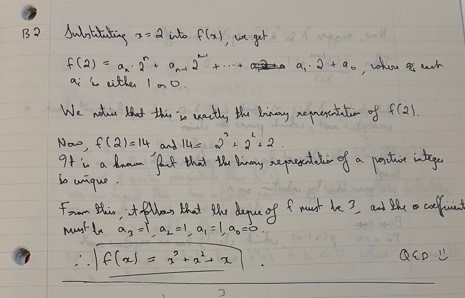 B2 Substituting x=2 into f(x), we get
f(2) = aₙ·2ⁿ + aₙ₋₁2ⁿ⁻¹ + ... + a₁·2 + a₀, where each
aᵢ is either 1 or 0.
We notice that this is exactly the binary representation of f(2).
Now, f(2)=14 and 14= 2³+2²+2.
It is a known fact that the binary representation of a positive integer
is unique.
From this, it follows that the degree of f must be 3, and the coefficients
must be a₃=1, a₂=1, a₁=1, a₀=0.
∴ f(x) = x³+x²+x . QED